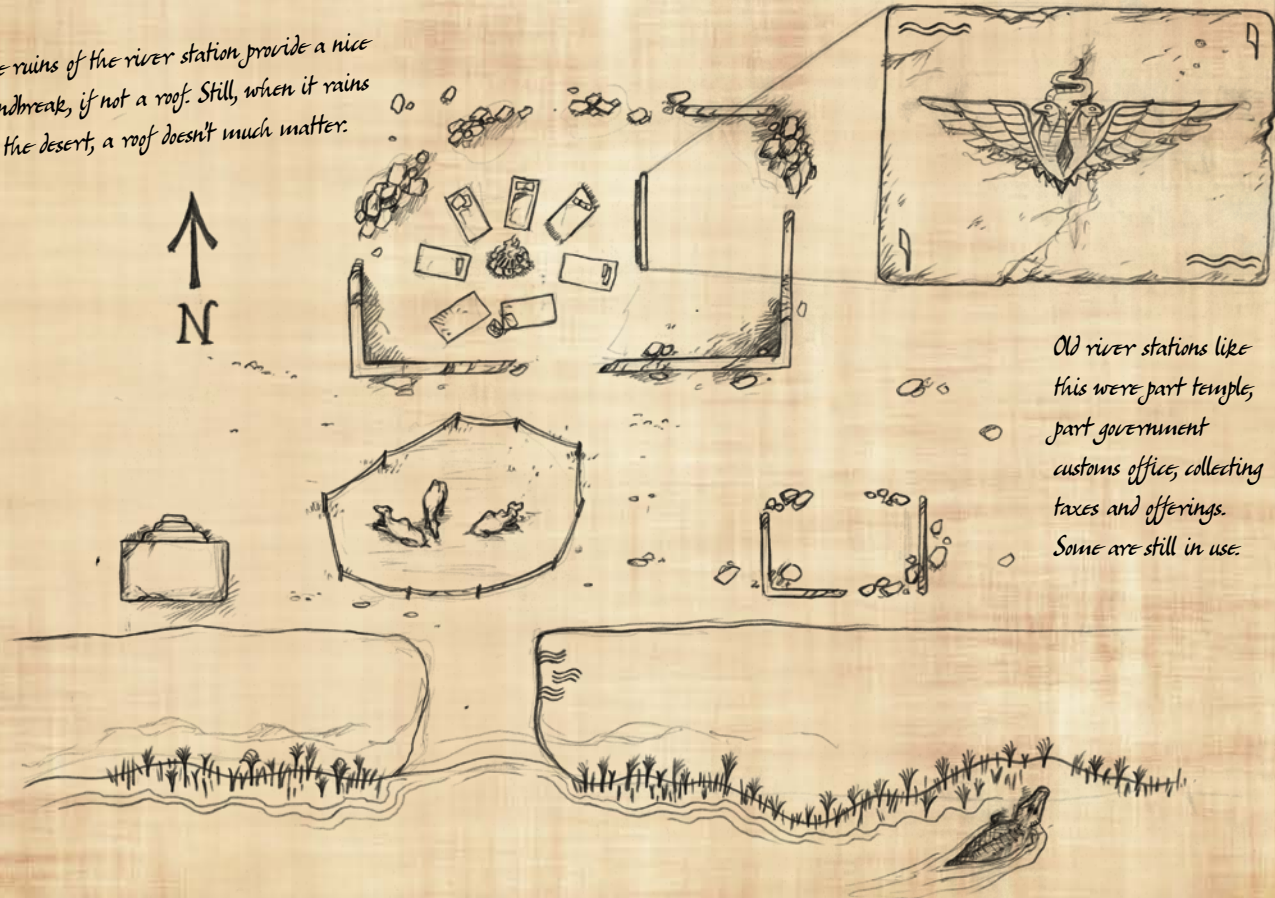 e ruins of the river station provide a nice
ndbreak, if not a roof. Still, when it rains
the desert, a roof doesn't much matter.
N
Old river stations like
this were part temple,
part government
customs office, collecting
taxes and offerings.
Some are still in use.